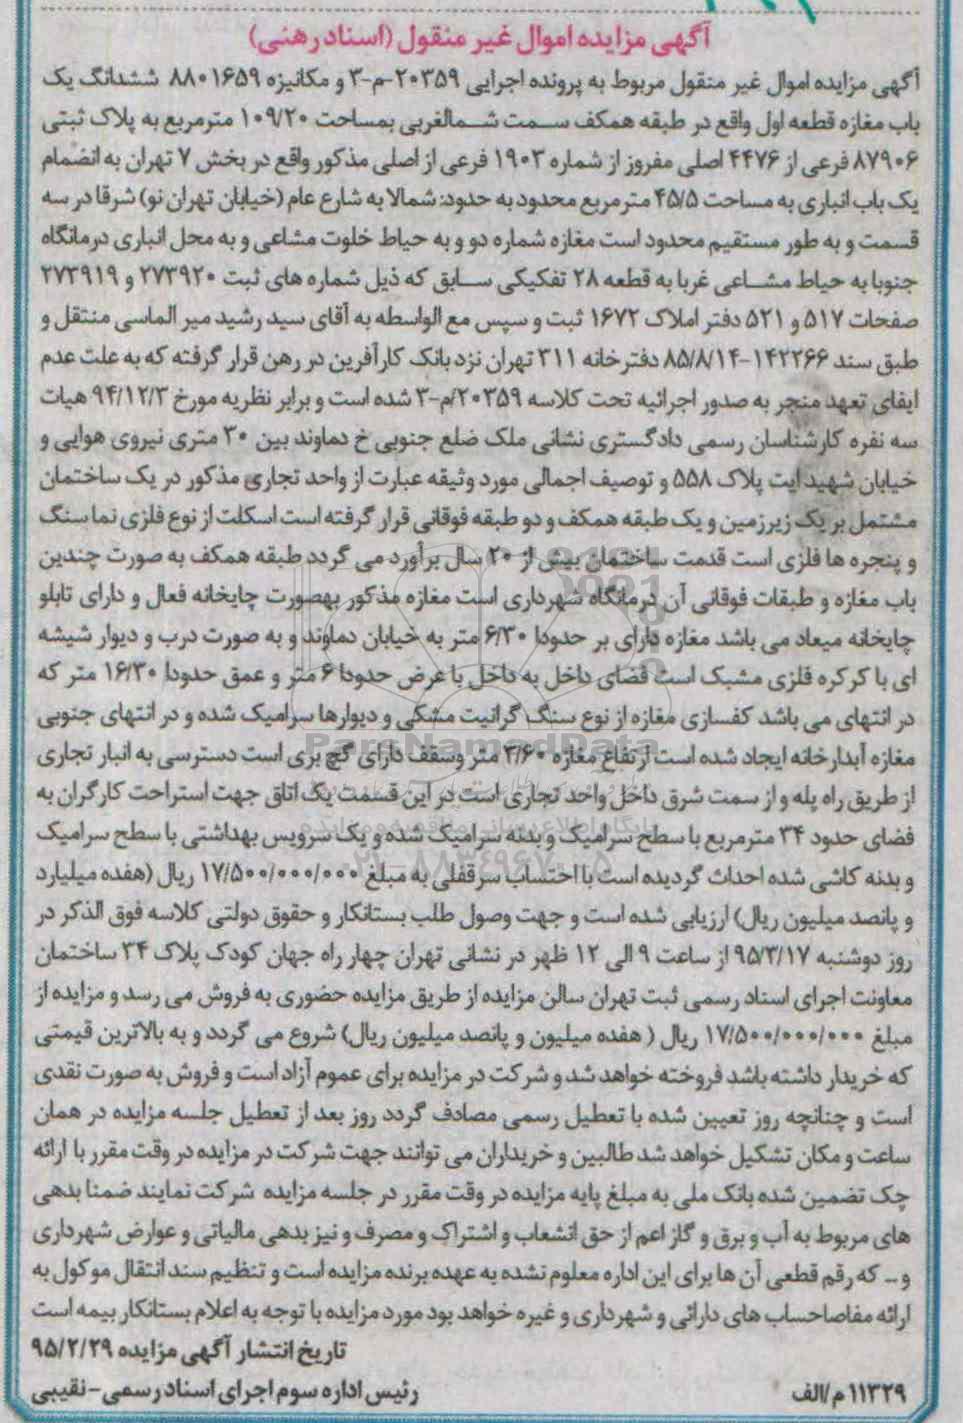 آگهی مزایده اموال غیر منقول (اسناد رهنی)
آگهی مزایده اموال غیر منقول مربوط به پرونده اجرایی ۲۰۳۵۹-م-۳ و مکانیزه ۸۸۰۱۶۵۹ ششدانگ یک
باب مغازه قطعه اول واقع در طبقه همکف سمت شمالغربی بمساحت ۱۰۹/۲۰ مترمربع به پلاک ثبتی
۸۷۹۰۶ فرعی از ۴۴۷۶ اصلی مفروز از شماره ۱۹۰۳ فرعی از اصلی مذکور واقع در بخش ۷ تهران به انضمام
یک باب انباری به مساحت ۴۵/۵ مترمربع محدود به حدود: شمالا به شارع عام (خیابان تهران نو) شرقا در سه
قسمت و به طور مستقیم محدود است مغازه شماره دو و به حیاط خلوت مشاعی و به محل انباری درمانگاه
جنوبا به حیاط مشاعی غربا به قطعه ۲۸ تفکیکی سابق که ذیل شماره های ثبت ۲۷۳۹۲۰ و ۲۷۳۹۱۹
صفحات ۵۱۷ و ۵۲۱ دفتر املاک ۱۶۷۲ ثبت و سپس مع الواسطه به آقای سید رشید میر الماسی منتقل و
طبق سند ۱۴۲۲۶۶-۸۵/۸/۱۴ دفترخانه ۳۱۱ تهران نزد بانک کارآفرین در رهن قرار گرفته که به علت عدم
ایفای تعهد منجر به صدور اجرائیه تحت کلاسه ۲۰۳۵۹/م-۳ شده است و برابر نظریه مورخ ۹۴/۱۲/۳ هیات
سه نفره کارشناسان رسمی دادگستری نشانی ملک ضلع جنوبی خ دماوند بین ۳۰ متری نیروی هوایی و
خیابان شهید آیت پلاک ۵۵۸ و توصیف اجمالی مورد وثیقه عبارت از واحد تجاری مذکور در یک ساختمان
مشتمل بر یک زیرزمین و یک طبقه همکف و دو طبقه فوقانی قرار گرفته است اسکلت از نوع فلزی نما سنگ
و پنجره ها فلزی است قدمت ساختمان بیش از ۲۰ سال برآورد می گردد طبقه همکف به صورت چندین
باب مغازه و طبقات فوقانی آن درمانگاه شهرداری است مغازه مذکور بهصورت چایخانه فعال و دارای تابلو
چایخانه میعاد می باشد مغازه دارای بر حدودا ۶/۳۰ متر به خیابان دماوند و به صورت درب و دیوار شیشه
ای با کرکره فلزی مشبک است فضای داخل به داخل با عرض حدودا ۶ متر و عمق حدودا ۱۶/۳۰ متر که
در انتهای می باشد کفسازی مغازه از نوع سنگ گرانیت مشکی و دیوارها سرامیک شده و در انتهای جنوبی
مغازه آبدارخانه ایجاد شده است ارتفاع مغازه ۳/۶۰ متر وسقف دارای گچ بری است دسترسی به انبار تجاری
از طریق راه پله و از سمت شرق داخل واحد تجاری است در این قسمت یک اتاق جهت استراحت کارگران به
فضای حدود ۳۴ مترمربع با سطح سرامیک و بدنه سرامیک شده و یک سرویس بهداشتی با سطح سرامیک
و بدنه کاشی شده احداث گردیده است با احتساب سرقفلی به مبلغ ۱۷/۵۰۰/۰۰۰/۰۰۰ ریال (هفده میلیارد
و پانصد میلیون ریال) ارزیابی شده است و جهت وصول طلب بستانکار و حقوق دولتی کلاسه فوق الذکر در
روز دوشنبه ۹۵/۳/۱۷ از ساعت ۹ الی ۱۲ ظهر در نشانی تهران چهار راه جهان کودک پلاک ۳۴ ساختمان
معاونت اجرای اسناد رسمی ثبت تهران سالن مزایده از طریق مزایده حضوری به فروش می رسد و مزایده از
مبلغ ۱۷/۵۰۰/۰۰۰/۰۰۰ ریال ( هفده میلیون و پانصد میلیون ریال) شروع می گردد و به بالاترین قیمتی
که خریدار داشته باشد فروخته خواهد شد و شرکت در مزایده برای عموم آزاد است و فروش به صورت نقدی
است و چنانچه روز تعیین شده با تعطیل رسمی مصادف گردد روز بعد از تعطیل جلسه مزایده در همان
ساعت و مکان تشکیل خواهد شد طالبین و خریداران می توانند جهت شرکت در مزایده در وقت مقرر با ارائه
چک تضمین شده بانک ملی به مبلغ پایه مزایده در وقت مقرر در جلسه مزایده شرکت نمایند ضمنا بدهی
های مربوط به آب و برق و گاز اعم از حق انشعاب و اشتراک و مصرف و نیز بدهی مالیاتی و عوارض شهرداری
و ... که رقم قطعی آن ها برای این اداره معلوم نشده به عهده برنده مزایده است و تنظیم سند انتقال موکول به
ارائه مفاصاحساب های دارائی و شهرداری و غیره خواهد بود مورد مزایده با توجه به اعلام بستانکار بیمه است
تاریخ انتشار آگهی مزایده ۹۵/۲/۲۹
رئیس اداره سوم اجرای اسناد رسمی - نقیبی
۱۱۳۲۹ م/الف
ParsNamadData
۰۲۱-۸۸۳۴۹۶۷۰-۵